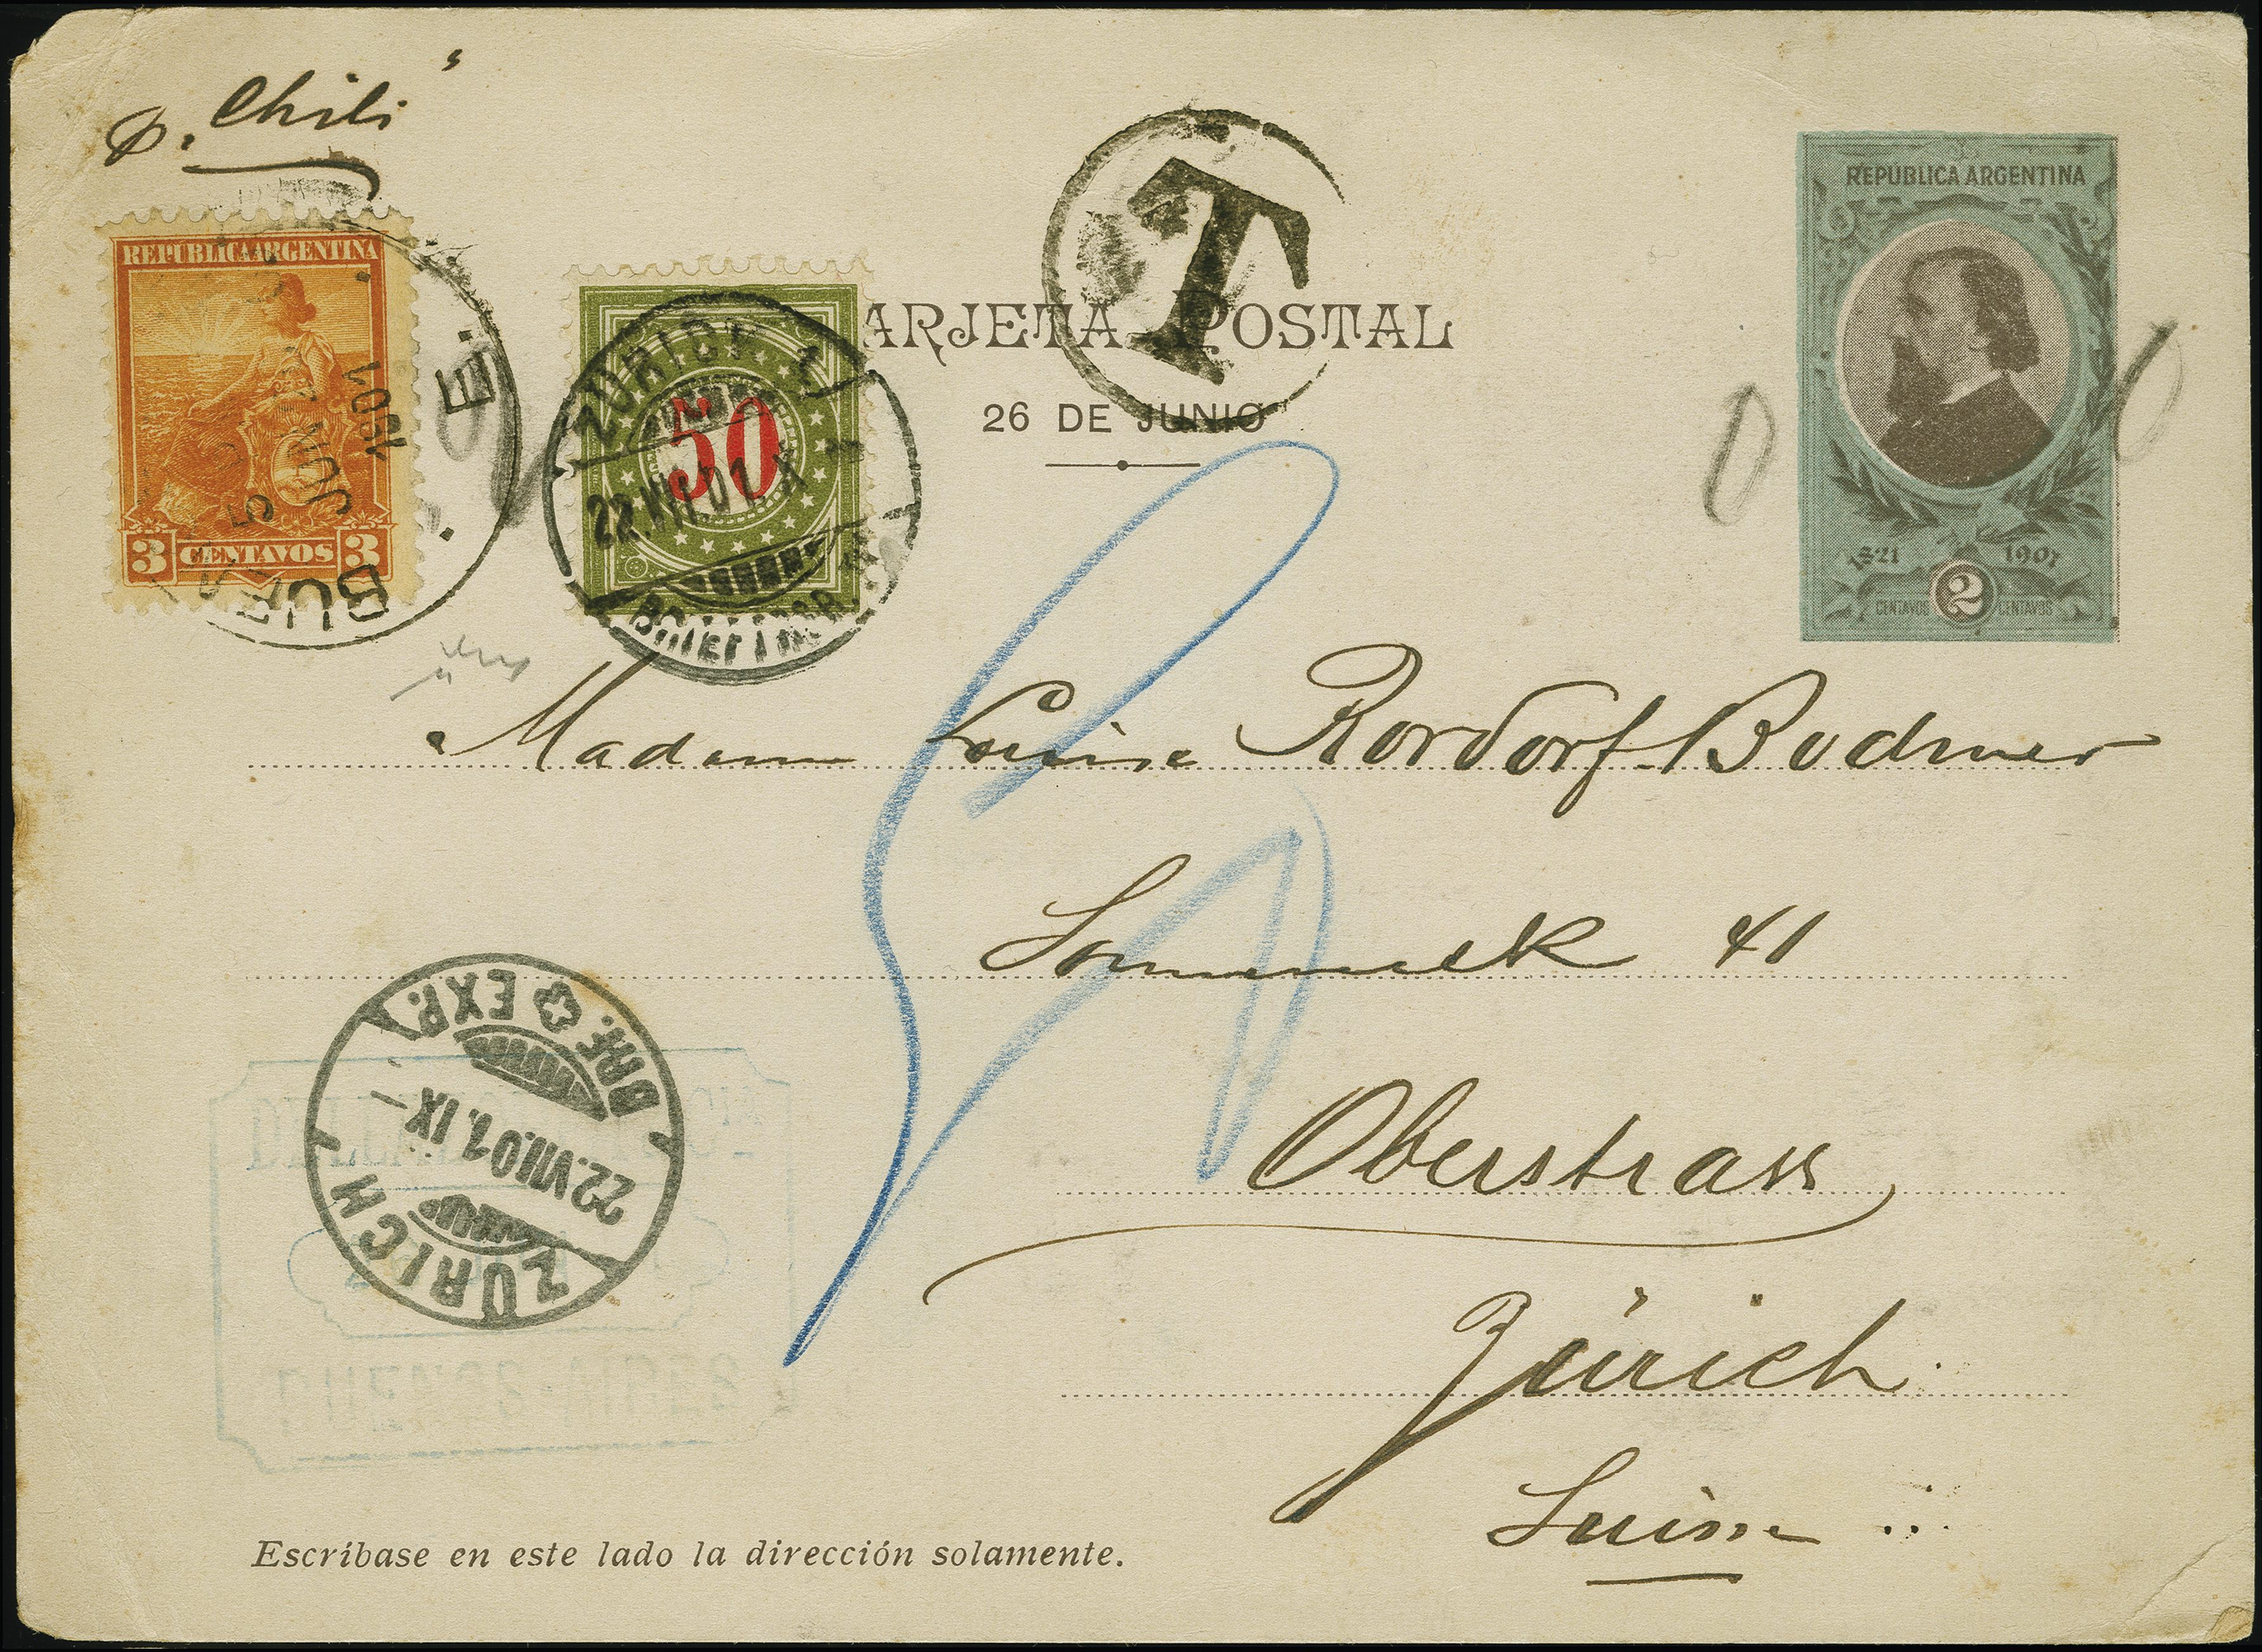 p. "Chili"
REPÚBLICA ARGENTINA
3 CENTAVOS 3
5 JUN
1901
BUE
. E.
ZÜRICH 1
22.VII.01.X
Brieftr
50
T
ARJETA POSTAL
26 DE JUNIO
REPÚBLICA ARGENTINA
1821 1901
CENTAVOS 2 CENTAVOS
Madame Louise Rordorf-Bodmer
Sonneneck 41
Oberstrass
Zürich
Suisse
BRF. EXP.
22.VII.01.IX-
ZÜRICH
BUENOS AIRES
Escríbase en este lado la dirección solamente.